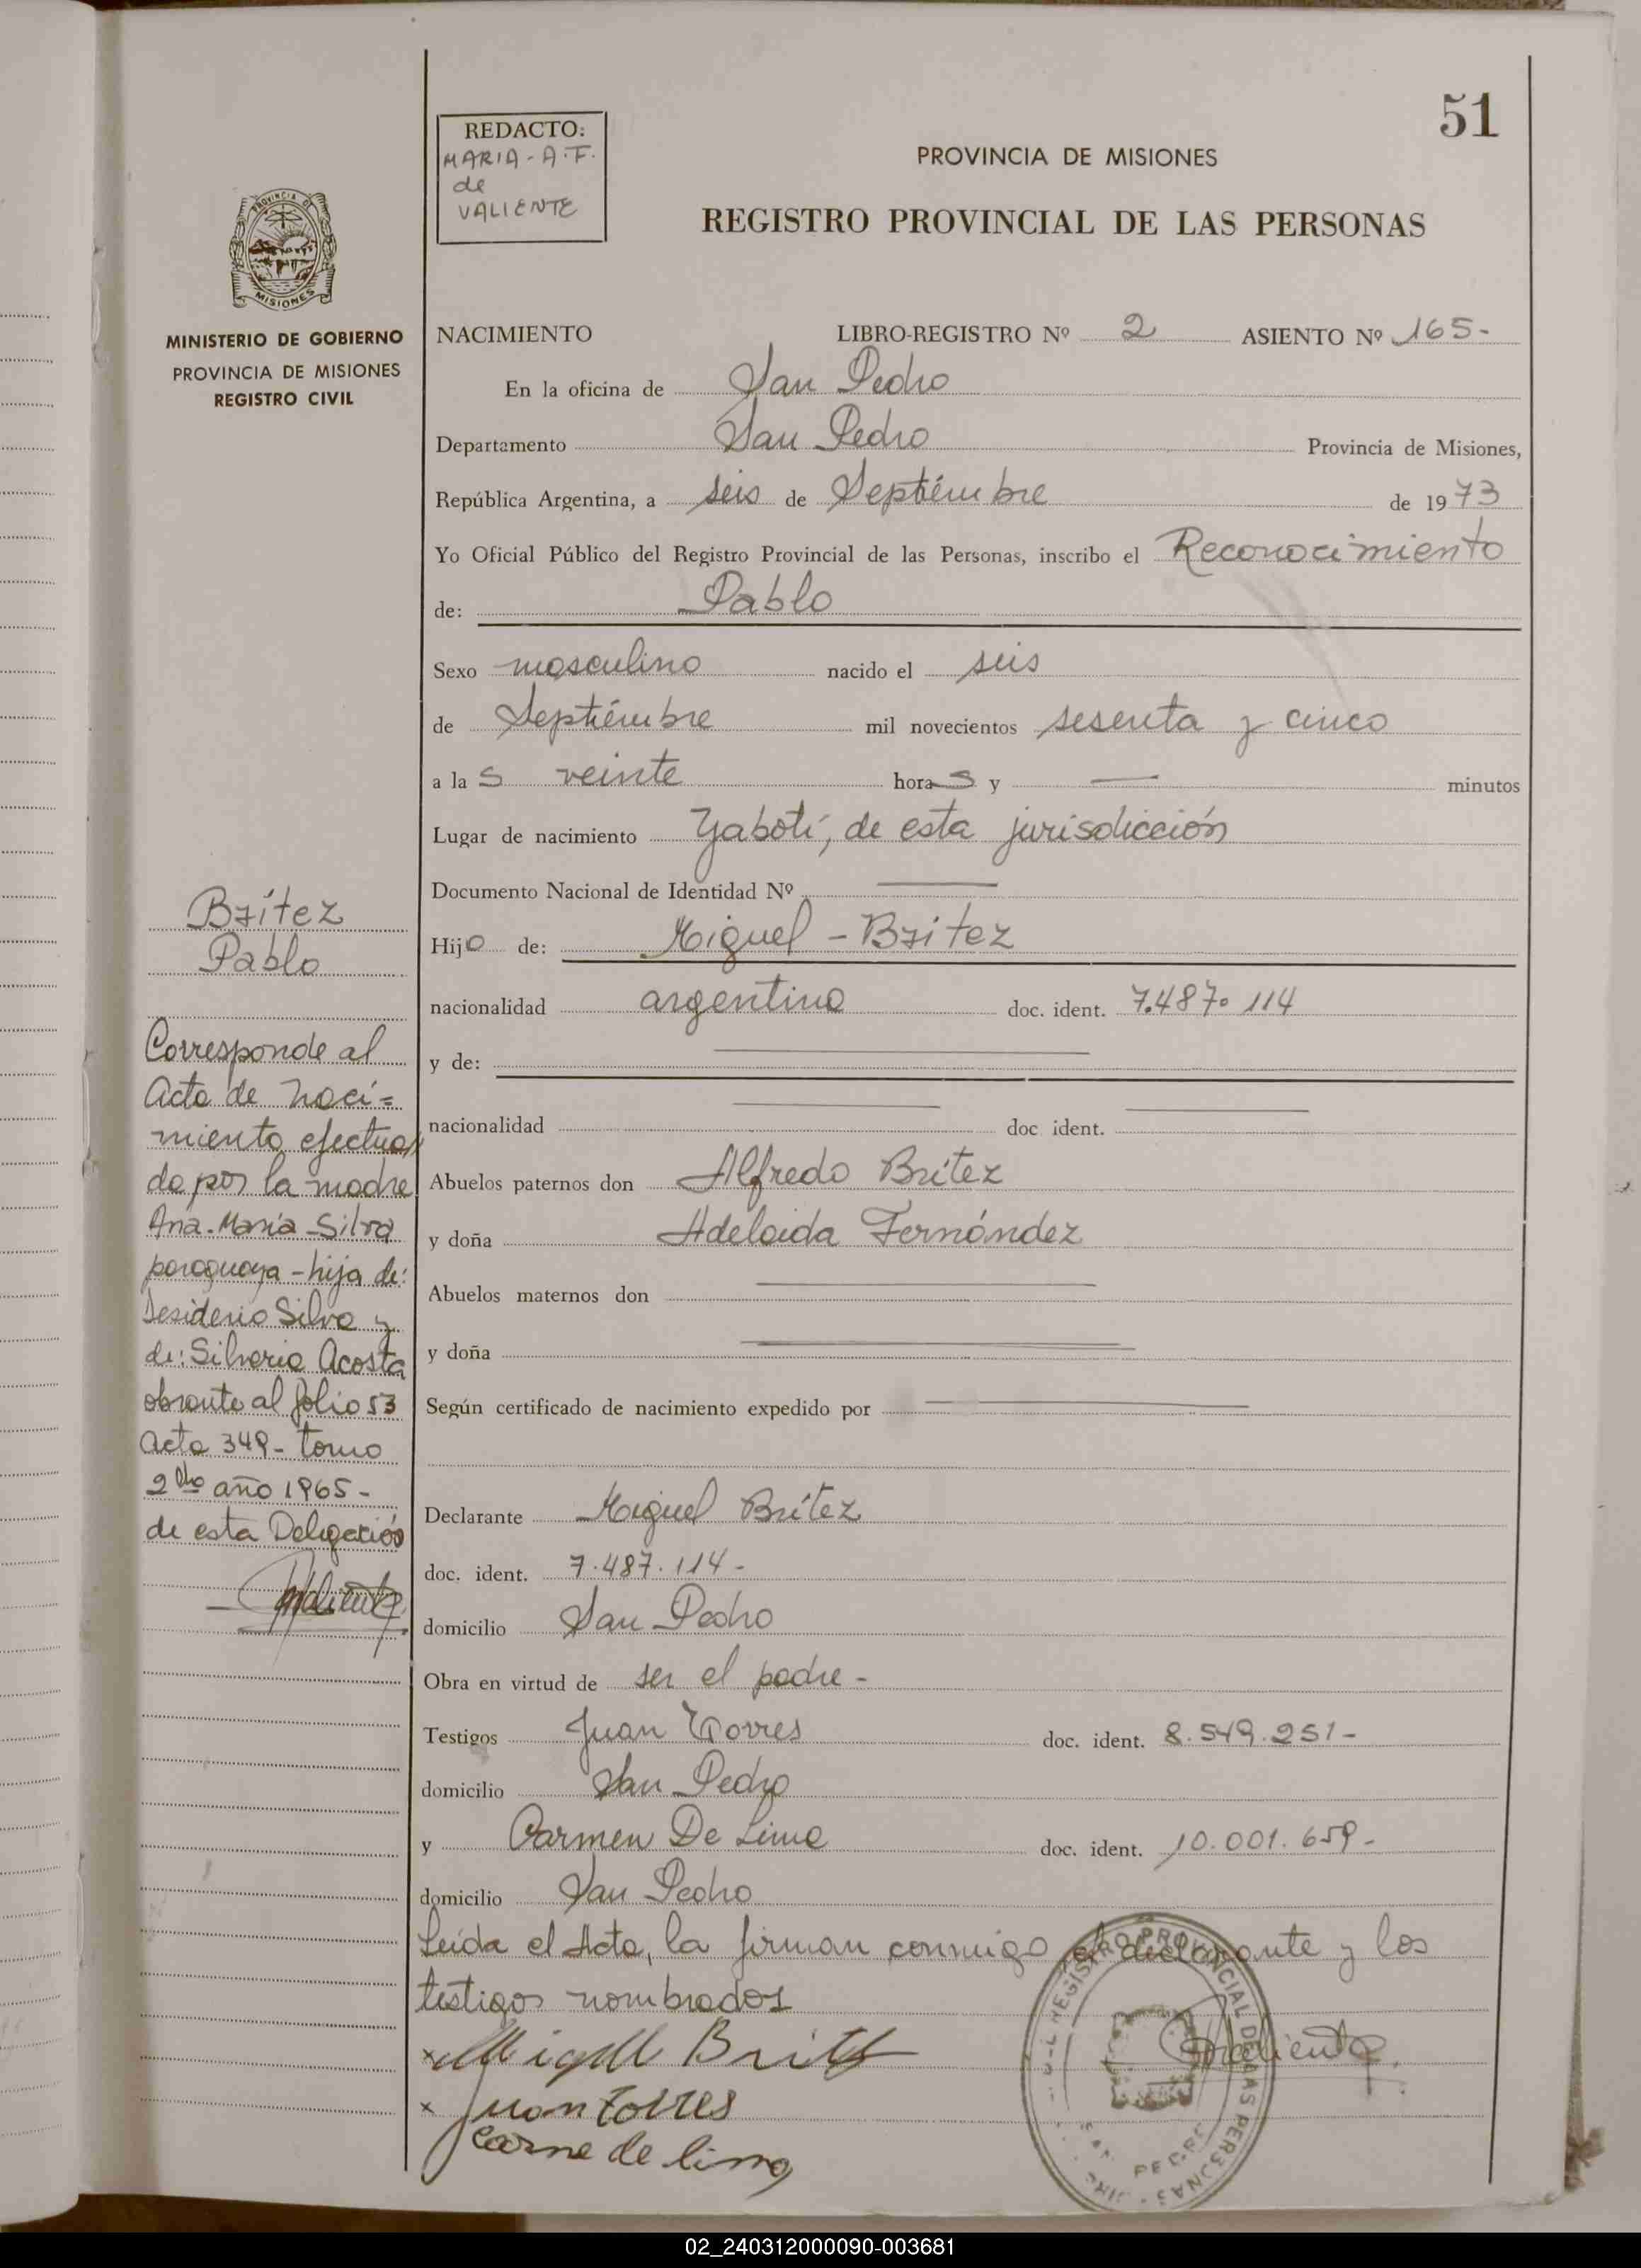 51
REDACTO:
MARIA - A.F.
de
VALIENTE
PROVINCIA DE MISIONES
REGISTRO PROVINCIAL DE LAS PERSONAS
PROVINCIA DE
MISIONES
MINISTERIO DE GOBIERNO
PROVINCIA DE MISIONES
REGISTRO CIVIL
NACIMIENTO LIBRO-REGISTRO Nº 2 ASIENTO Nº 165-
En la oficina de San Pedro
Departamento San Pedro Provincia de Misiones,
República Argentina, a seis de Septiémbre de 1973
Yo Oficial Público del Registro Provincial de las Personas, inscribo el Reconocimiento
de: Pablo
Sexo masculino nacido el seis
de Septiémbre mil novecientos sesenta y cinco
a las veinte horas y — minutos
Lugar de nacimiento Yabotí, de esta jurisdicción
Documento Nacional de Identidad Nº —
Hijo de: Miguel - Brítez
nacionalidad argentino doc. ident. 7.487.114
y de: —
nacionalidad — doc ident. —
Abuelos paternos don Alfredo Brítez
y doña Adelaida Fernández
Abuelos maternos don —
y doña —
Según certificado de nacimiento expedido por —
Declarante Miguel Brítez
doc. ident. 7.487.114-
domicilio San Pedro
Obra en virtud de ser el padre -
Testigos Juan Torres doc. ident. 8.549.251-
domicilio San Pedro
y Carmen De Lima doc. ident. 10.001.659-
domicilio San Pedro
Leída el Acta, la firman conmigo el declarante y los
testigos nombrados
Brítez
Pablo
Corresponde al
Acta de naci=
miento efectua
da por la madre
Ana-María-Silva
paraguaya - hija de:
Desiderio Silva y
de: Silveria Acosta
obrante al folio 53
Acta 349- tomo
2do año 1965-
de esta Delegación
x Miguel Britez
x Juan Torres
Carme de lima
REGISTRO PROVINCIAL DE LAS PERSONAS
02_240312000090-003681